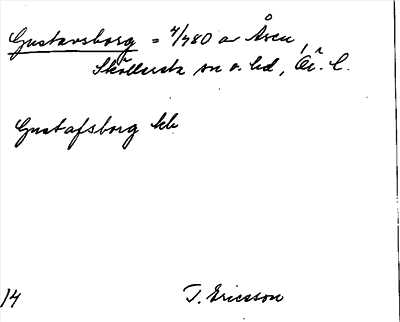 Gustavsborg = 4/480 av Åsen,
Sköllersta sn o. hd, Ör. l.
Gustafsborg kk
14
T. Ericsson